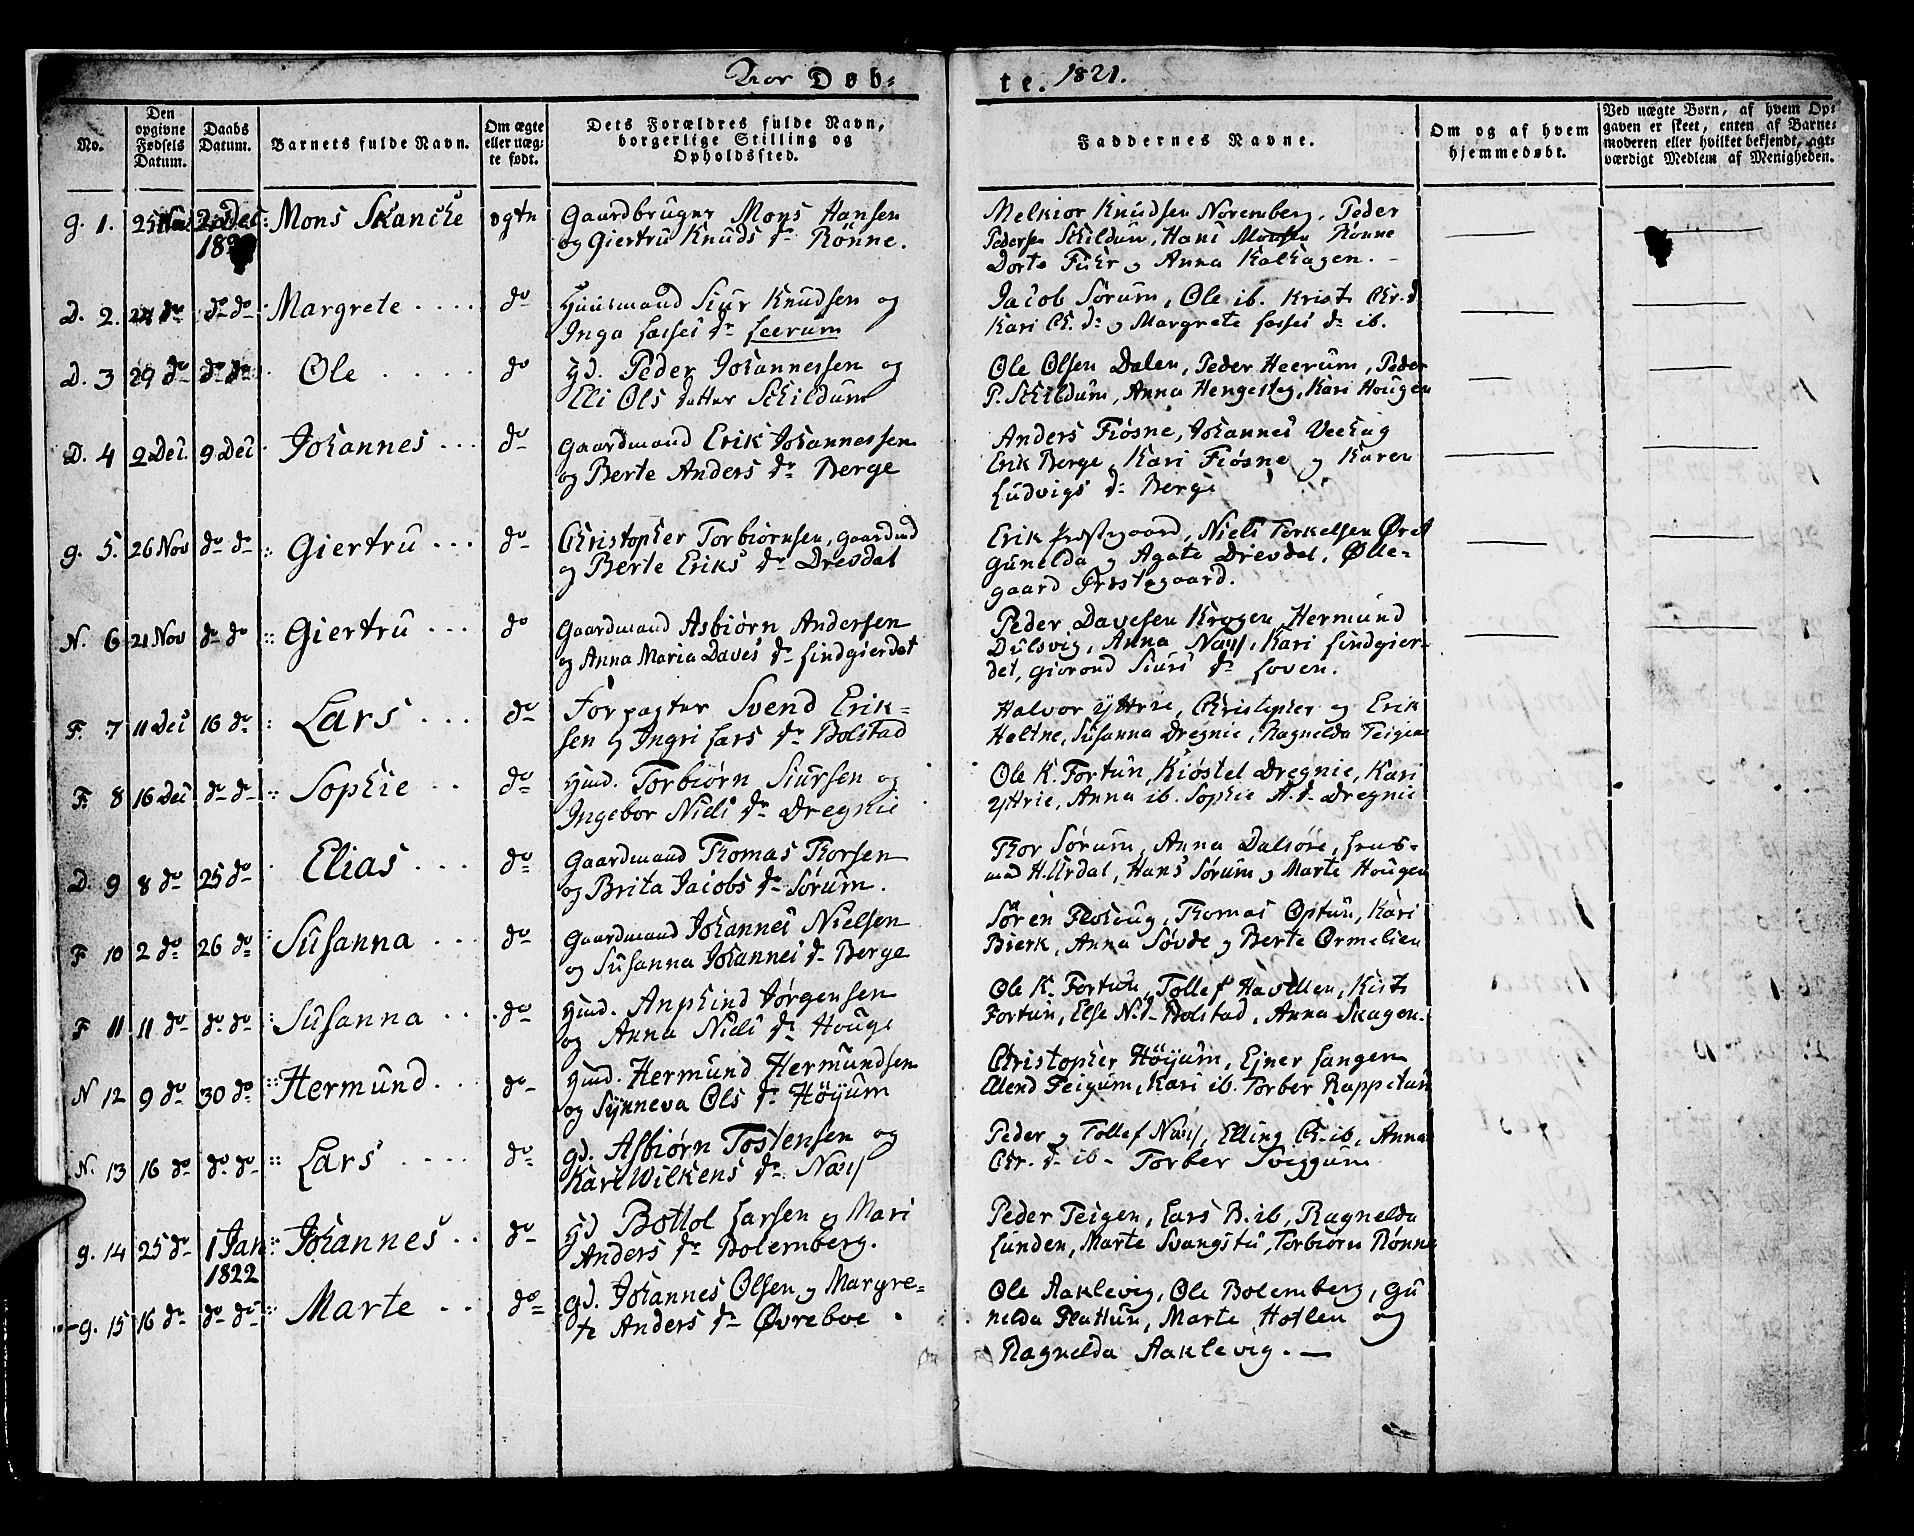 For Døb-
te. 1821.
No.
Den opgivne Fødsels Datum.
Daabs Datum.
Barnets fulde Navn.
Om ægte eller uæg-te født.
Dets Forældres fulde Navn, borgerlige Stilling og Opholdssted.
Faddernes Navne.
Om og af hvem hjemmedøbt.
Ved uægte Børn, af hvem Op-gaven er skeet, enten af Barne-moderen eller hvilket bekjendt, agt-værdigt Medlem af Menigheden.
g. 1. 25 Nov 2 Dec Mons Skancke ægtn Gaardbruger Mons Hansen
og Giertru Knuds dr Rönne.
Melkior Knudsen Noremberg, Peder
Pedersen Schildum, Hans Monsen Rönne
Dorte Fuhr og Anna Kalhagen. -
D. 2. 24 do do do Margrete do Huusmand Siur Knudsen og
Inga Lasses dr Leerum
Jacob Sørum, Ole ib. Krist. Chr. d
Kari Ch. dr og Margrete Lasses dr ib.
D. 3 29 do do do Ole do gd. Peder Johannessen og
Elli Ols datter Schildum
Ole Olsen Dalen, Peder Heerum, Peder
P. Schildum, Anna Hengesteg, Kari Hougen
D. 4 2 Dec. 9 Dec Johannes do Gaardmand Erik Johannessen
og Berte Anders dr Berge
Anders Fiøsne, Johannes Veehag
Erik Berge, Kari Fiøsne og Karen
Ludvigs dr Berge
g. 5. 26 Nov do do Giertru do Christopher Torbiørnsen, gaardmd
og Berte Eriks dr Drevdal
Erik Prestegaard, Niels Torkelsen Øret
Gunelda og Agate Drevdal, Ølle-
gaard Prestegaard.
N. 6 21 Nov do do Giertru do Gaardmand Asbiørn Andersen
og Anna Maria Daves dr Lindgierdet
Peder Davesen Krogen, Hermund
Dulsvig, Anna Næss, Kari Lindgier-
det, Giorond Siurs dr Loven.
F. 7 11 Dec 16 do Lars do Forpagter Svend Erik-
sen og Ingri Lars dr Bolstad
Halvor Yttrie, Christopher og Erik
Heltne, Susanna Dregnie, Ragnelda Teigen
F. 8 16 Dec do do Sophie do Hmd. Torbiørn Siursen og
Ingebor Niels dr Dregnie
Ole K. Fortun, Kiøstel Dregnie, Kari
Yttrie, Anna ib. Sophie A. d. Dregnie
D. 9 8 do 25 do Elias do Gaardmand Thomas Thorsen
og Brita Jacobs dr Sørum.
Thor Sørum, Anna Dalsøre,
H. Urdal, Hans Sørum og Marte Hougen
F 10 2 do 26 do Susanna do Gaardmand Johannes Nielsen
og Susanna Johannes dr Berge
Søren Flohoug, Thomas Optun, Kari
Bierk, Anna Søvde og Berte Ormelien
F 11 11 do do do Susanna do Hmd. Anphind Jørgensen
og Anna Niels dr Houge
Ole K. Fortun, Tollef Havellen, Kist.
Fortun, Else N. d. Bolstad, Anna Skagen.
N 12 9 do 30 do Hermund do Hmd. Hermund Hermundsen
og Synneva Ols dr Höyum
Christopher Höyum, Ejner Langen
Elend Feigum, Kari ib. Torber Rappetun
N. 13 16 do do do Lars do gd. Asbiørn Tostensen og
Kari Wilkens dr Næss
Peder og Tollef Næss, Elling Ch. ib, Anna
Chr. d. ib - Torber Sviggum
g. 14 25 do 1 Jan 1822 Johannes do gd Bottol Larsen og Mari
Anders dr Bolemberg.
Peder Teigen, Lars B. ib, Ragnelda
Lunden, Marte Svangstu, Torbiørn Rønne
g. 15 16 do do do Marte do gd. Johannes Olsen og Margre-
te Anders dr Øvreboe.
Ole Aaklevig, Ole Bolemberg, Gu
nelda Flattun, Marte Hotlen og
Ragnelda Aaklevig. -